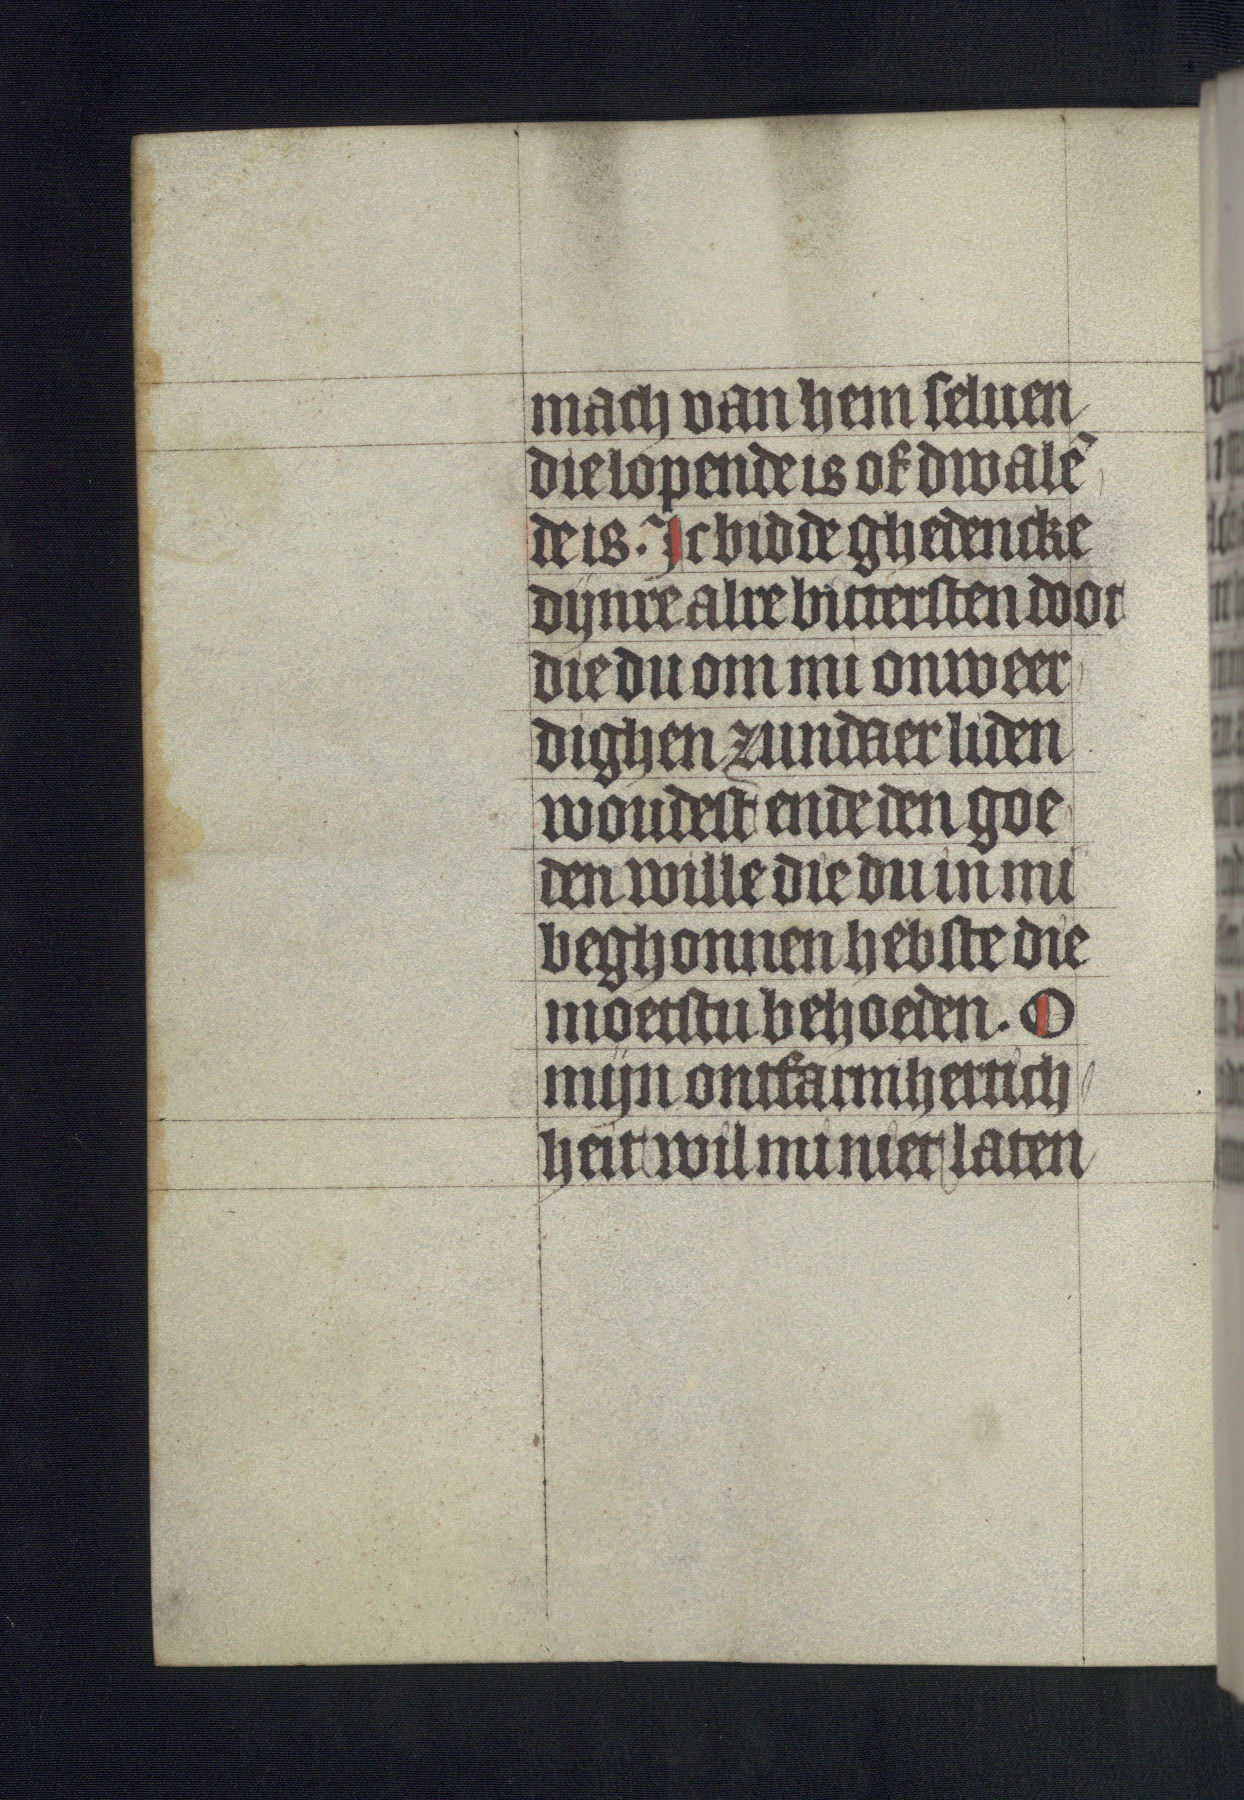 mach van hem seluen
die lopende is of dwalē
de is. Ic bidde ghedencke
dijnre alre bittersten doot
die du om mi onweer
dighen zundaer liden
woudest ende den goe
den wille die du in mi
beghonnen hebste die
moetstu behoeden. O
mijn ontfarmhertich
heit wil mi niet laten